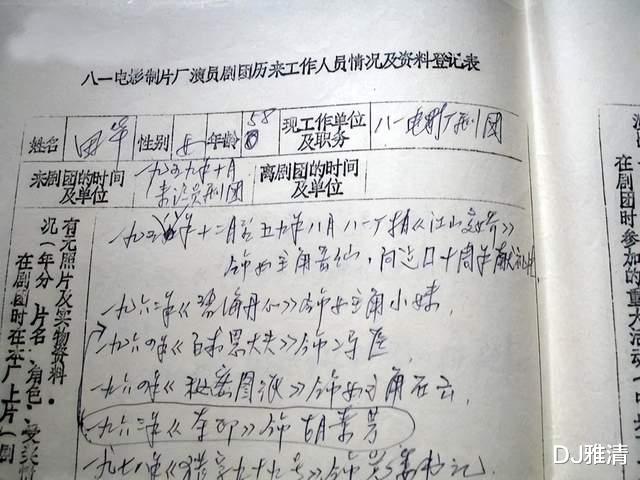 八一电影制片厂演员剧团历来工作人员情况及资料登记表
姓名 田华 性别 女 年龄 58 现工作单位及职务 八一电影厂剧团
来剧团的时间及单位 一九五九年十月来演员剧团 离剧团的时间及单位
有无照片及实物资料.
况(年分、片名、角色、受奖
在剧团时在生产上片(剧
一九五年十二月至五九年八月八一厂拍《江山多娇》
饰女主角岳仙,向建国十周年献礼片.
一九六二年《碧海丹心》饰女主角小妹,
一九六四年《白求恩大夫》饰冯医,
一九六四年《秘密图纸》饰女主角石云,
一九六三年《夺印》饰胡素芳
一九七八年《猎字九十九号》饰 书记.
在剧团时参加的重大活动(中
DJ雅清